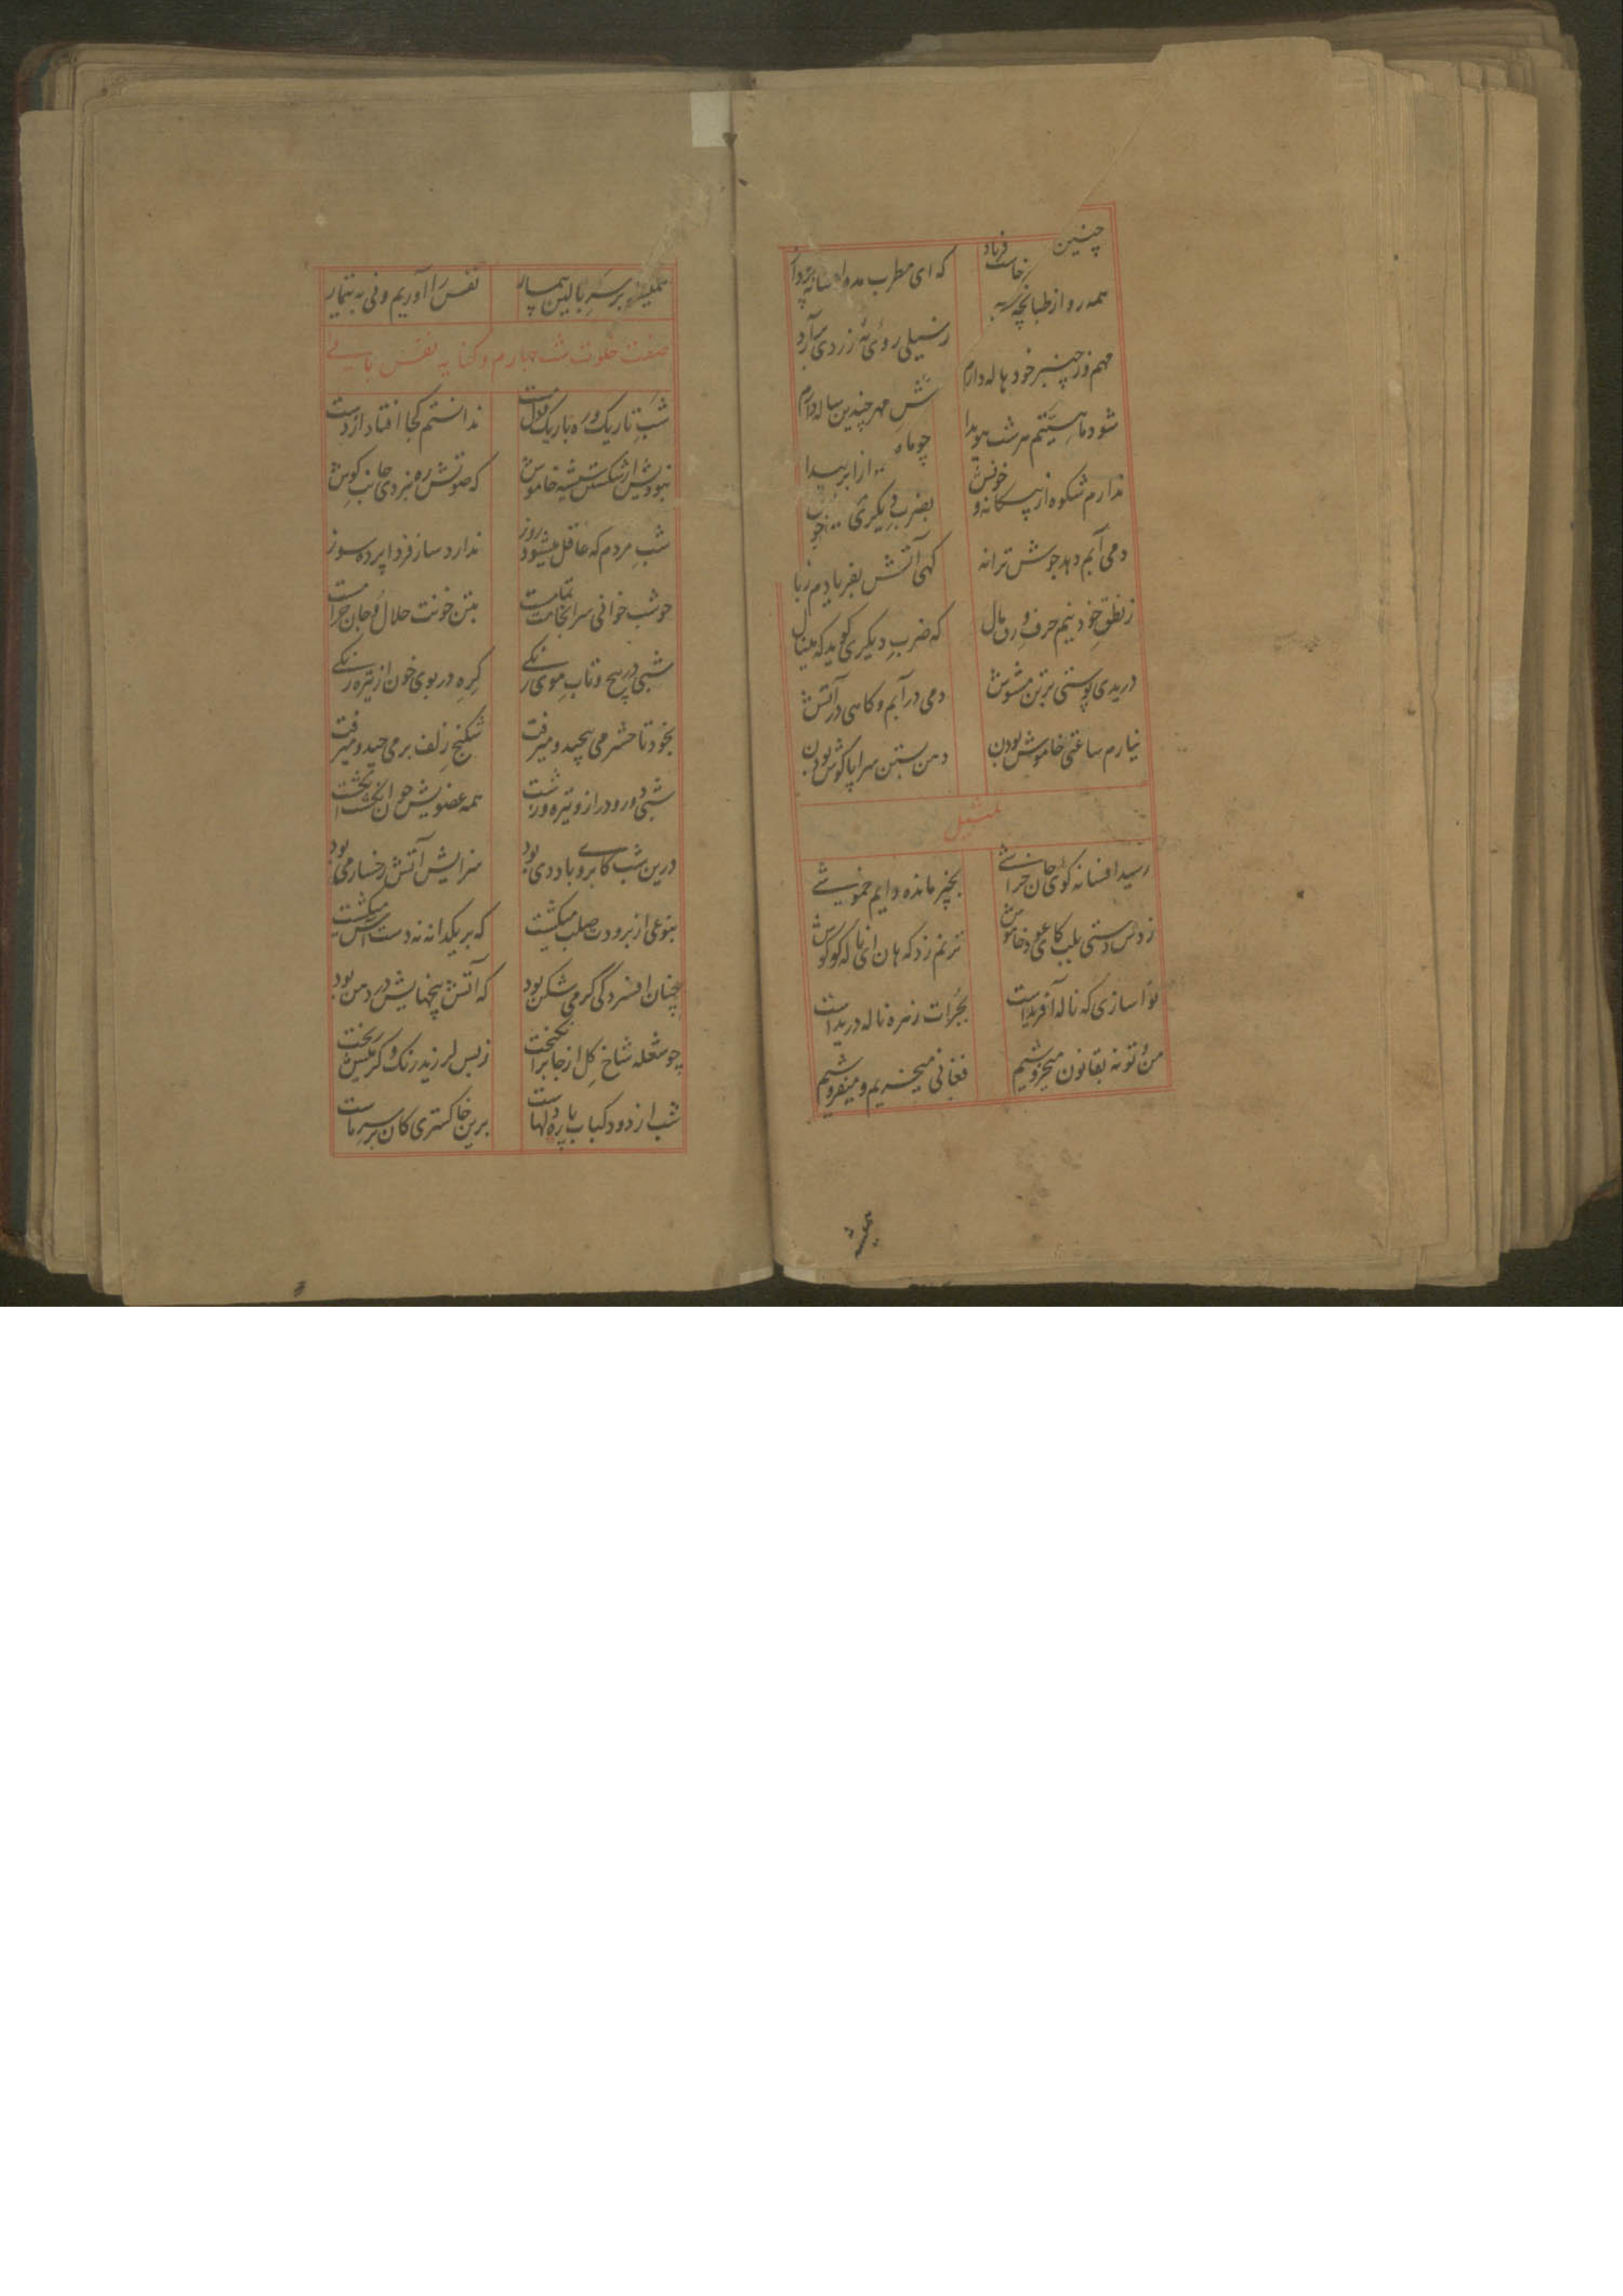 چنین فریاد خاست که ای مطرب مده افسانه پرداز
همه رو از طبانچه ز سیلی روی نه زردی برآرد
مهم وز چنبر خود هاله دارم شش مهر چندین ساله دارم
شود ماهیستم هر شب هویدا چو ماه از ابر پیدا
ندارم شکوه از بیکانه و خویش بضرب دیکری
دمی آبم دهد جوش ترانه کهی آتش بفریادم
ز نطق خود نیم حرف ورق مال که ضرب دیکری کوید که مینال
دریدی پوستی بر تن مشوش دمی در آبم و کاهی در آتش
نیارم ساعتی خاموش بودن دهن بستن سراپا کوش بودن
تمثیل
رسید افسانه کوی جان خراشی بخیر مانده وایم خموشی
ز دس دستی بلب کای عود خاموش ترنم زد که هان ای ناله کو کوش
نوا سازی که ناله آفریداست بجرات زهره ناله دریداست
من و تو نه بقانون میخروشیم فغانی میخریم و میفروشیم
بر سر بالین بیمار نفس را آوریم و نی به تیمار
صفت خلوت شب چهارم و کنایه نفس
شب تاریک و ره باریک و دل مست ندانستم کجا افتاد از دست
نبودش از شکستن شیشه خاموش که صوتش ره نبردی جانب کوش
شب مردم که عاقل میشود روز ندارد ساز فردا پرده سوز
چو شب خوانی سرانجامت تمامت بتن خونت حلال و جان حرامت
شبی در پیچ و تاب موی زنکی کره در بوی خون از تیره رنکی
بخود تا حشر می پیچید و میرفت شکنج زلف بر می چید و میرفت
شبی دور و دراز و تیره و زشت همه عضویش چون انکشت انکشت
درین شب کابرو باد دی بود سزایش آتش رخسار می بود
بنوعی از برودت صلب میکشت که بر یکدانه نه دست آس میکشت
چنان افسردکی کرمی شکن بود که آتش پنجهایش در دهن بود
چو شعله شاخ کل از جا برانکیخت ز بس لرزید رنک و کرمیش ریخت
شب از دود کباب پاره دلهاست برین خاکستری کان بر سر ماست